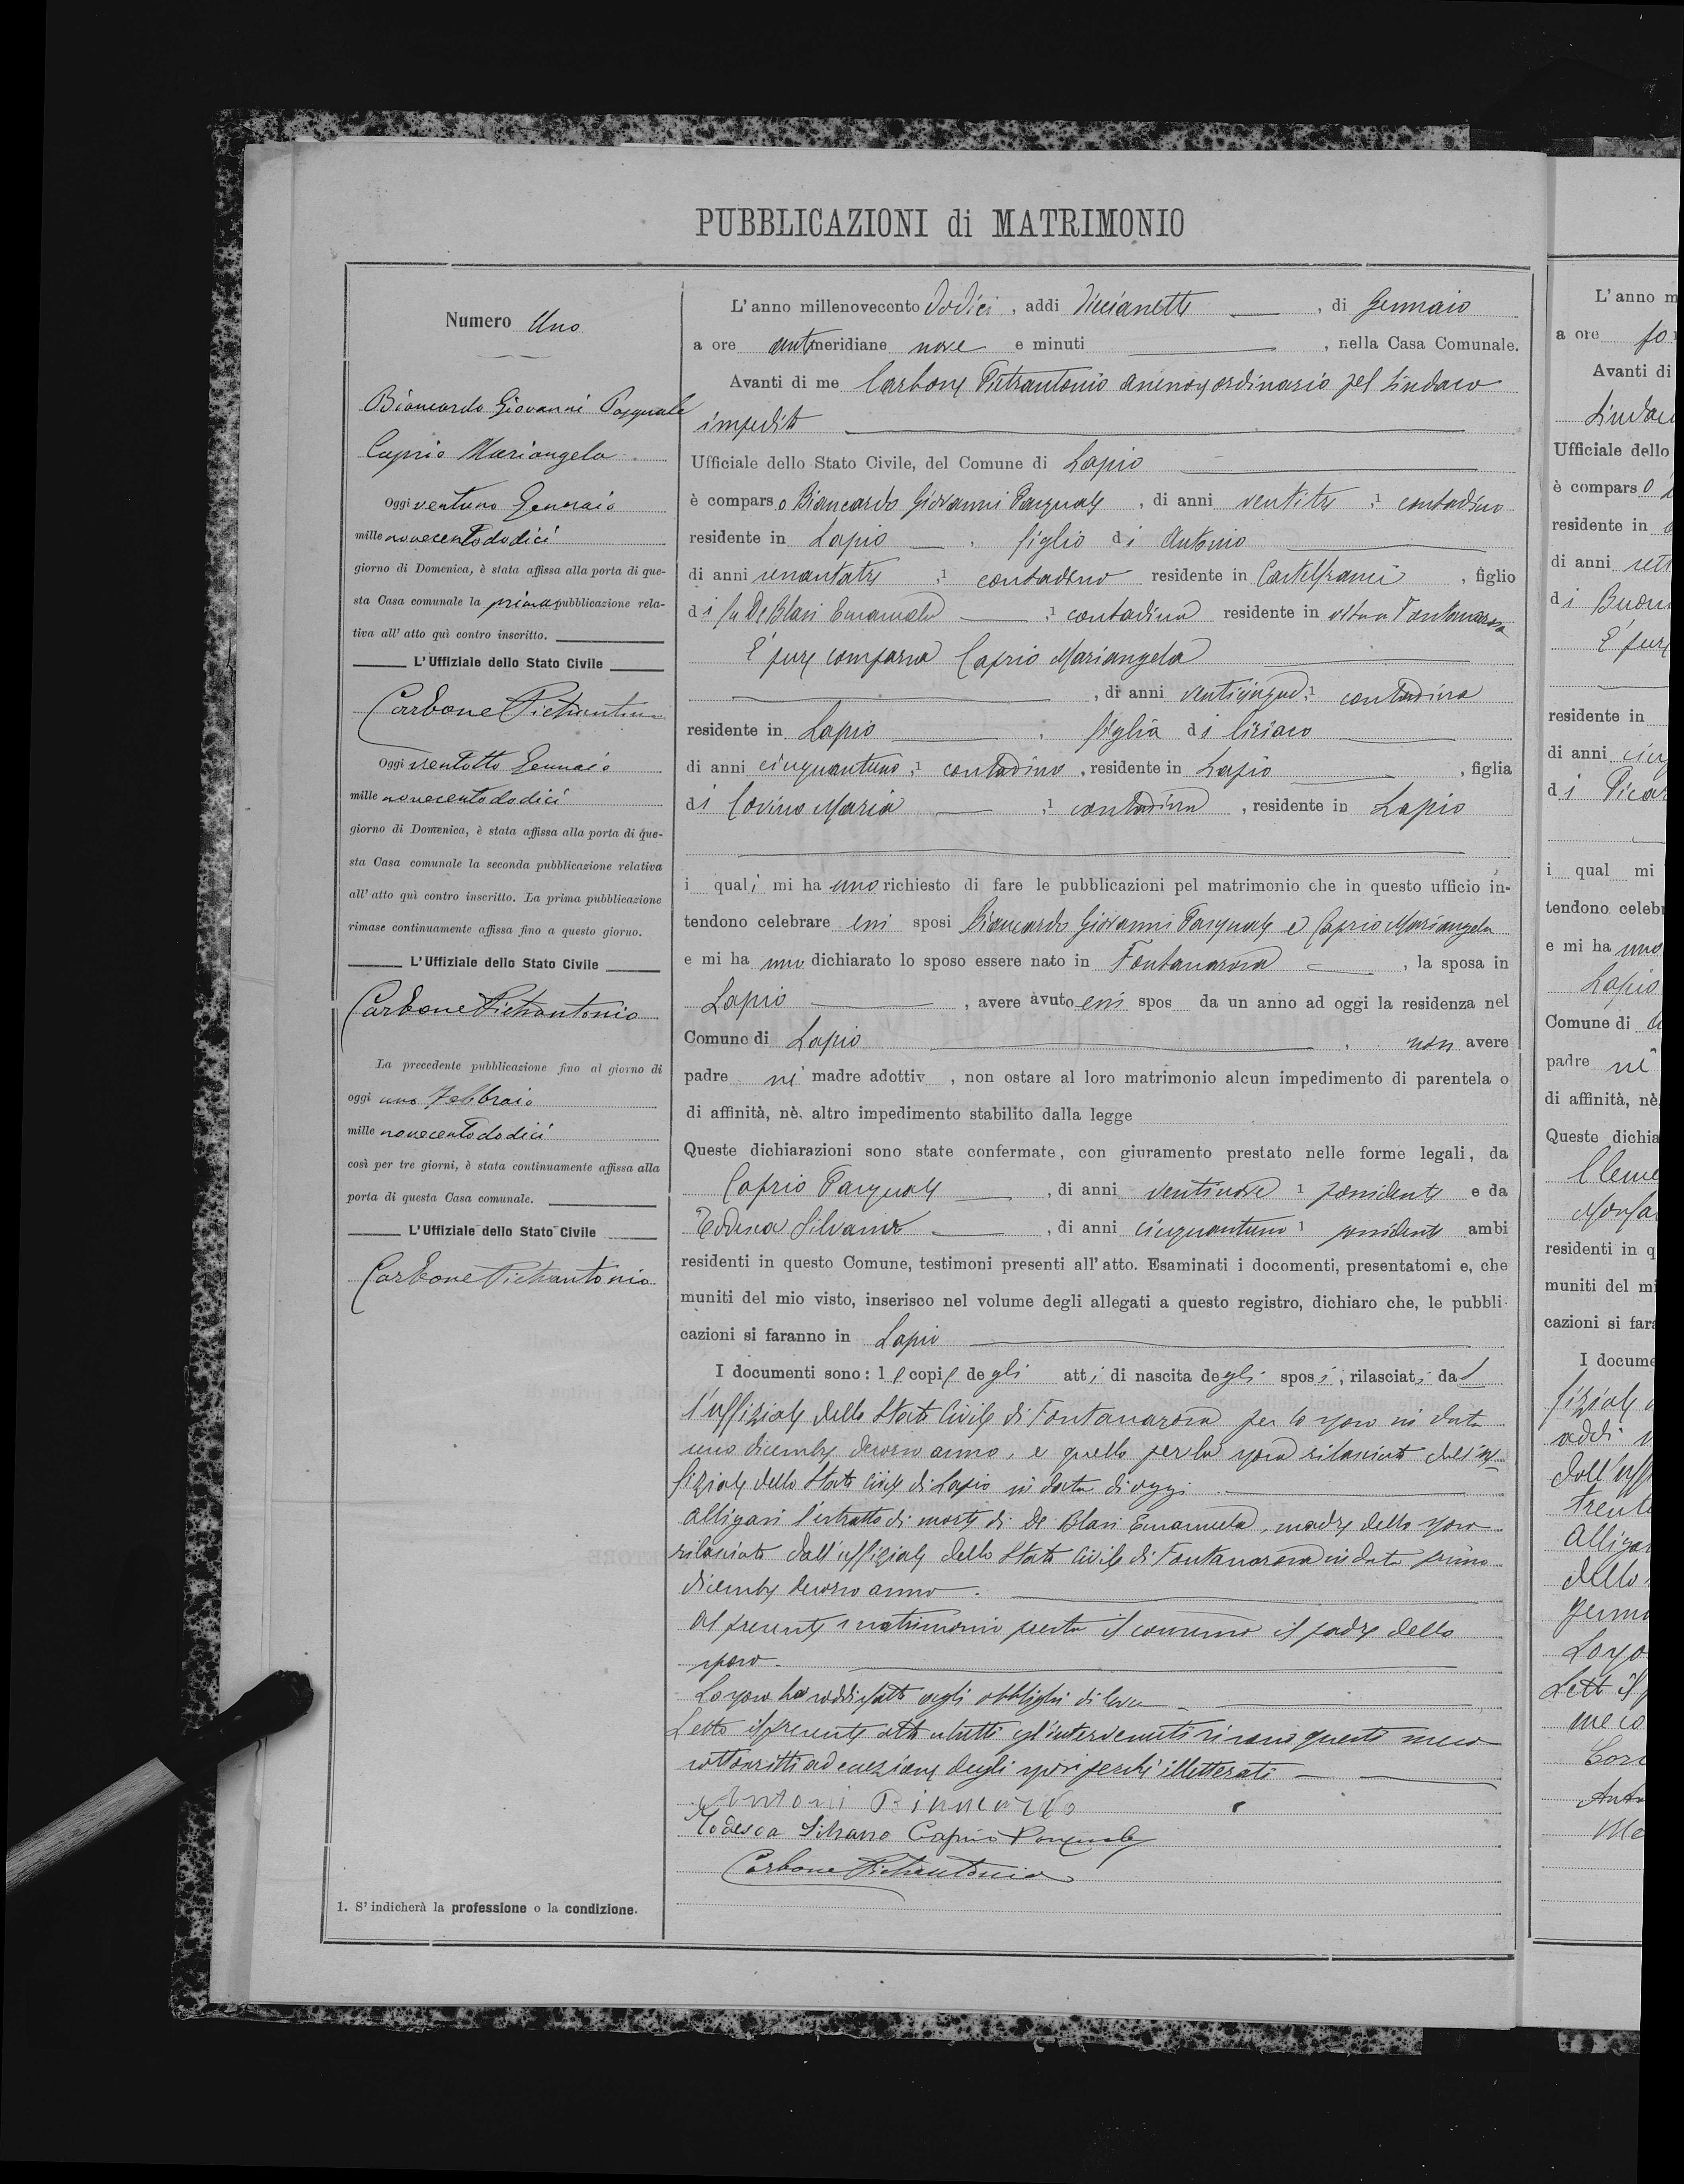 PUBBLICAZIONI di MATRIMONIO
Numero Uno
Biancardo Giovanni Pasquale
Caprio Mariangela
Oggi ventuno Gennaio
mille novecentododici
giorno di Domenica, è stata affissa alla porta di que-
sta Casa comunale la prima pubblicazione rela-
tiva all' atto quì contro inscritto.
L'Uffiziale dello Stato Civile
Carbone Pietrantonio
Oggi ventotto Gennaio
mille novecentododici
giorno di Domenica, è stata affissa alla porta di que-
sta Casa comunale la seconda pubblicazione relativa
all' atto quì contro inscritto. La prima pubblicazione
rimase continuamente affissa fino a questo giorno.
L'Uffiziale dello Stato Civile
Carbone Pietrantonio
La precedente pubblicazione fino al giorno di
oggi uno Febbraio
mille novecentododici
così per tre giorni, è stata continuamente affissa alla
porta di questa Casa comunale.
L'Uffiziale dello Stato Civile
Carbone Pietrantonio
1. S' indicherà la professione o la condizione.
L' anno millenovecento dodici, addi diciannette, di Gennaio
a ore antimeridiane nove e minuti, nella Casa Comunale.
Avanti di me Carbone Pietrantonio assessore ordinario pel Sindaco
impedito
Ufficiale dello Stato Civile, del Comune di Lapio
è comparso Biancardo Giovanni Pasquale, di anni ventitre, 1 contadino
residente in Lapio, figlio di Antonio
di anni sessantatre, 1 contadino residente in Castelfranci, figlio
di fu De Blasi Emanuela, 1 contadina residente in vita a Fontanarosa
È pure comparsa Caprio Mariangela
, di anni venticinque, 1 contadina
residente in Lapio, figlia di Ciriaco
di anni cinquantuno, 1 contadino, residente in Lapio, figlia
di Covino Maria, 1 contadina, residente in Lapio
i quali mi hanno richiesto di fare le pubblicazioni pel matrimonio che in questo ufficio in-
tendono celebrare essi sposi Biancardo Giovanni Pasquale e Caprio Mariangela
e mi hanno dichiarato lo sposo essere nato in Fontanarosa, la sposa in
Lapio, avere avuto essi spos da un anno ad oggi la residenza nel
Comune di Lapio, non avere
padre nè madre adottiv, non ostare al loro matrimonio alcun impedimento di parentela o
di affinità, nè altro impedimento stabilito dalla legge
Queste dichiarazioni sono state confermate, con giuramento prestato nelle forme legali, da
Caprio Pasquale, di anni ventinove 1 possidente e da
Todesca Silvano, di anni cinquantuno 1 possidente ambi
residenti in questo Comune, testimoni presenti all' atto. Esaminati i documenti, presentatomi e, che
muniti del mio visto, inserisco nel volume degli allegati a questo registro, dichiaro che, le pubbli-
cazioni si faranno in Lapio
I documenti sono: le copie degli atti di nascita degli sposi, rilasciati dal
l'uffiziale dello Stato Civile di Fontanarosa per lo sposo in data
uno dicembre decorso anno, e quello per la sposa rilasciato dall'uf-
fiziale dello Stato Civile di Lapio in data di oggi.
Alligasi l'estratto di morte di De Blasi Emanuela, madre dello sposo
rilasciato dall'uffiziale dello Stato Civile di Fontanarosa in data primo
dicembre decorso anno.
Al presente matrimonio presta il consenso il padre dello
sposo.
Lo sposo ha soddisfatto agli obblighi di leva
Letto il presente atto a tutti gl'intervenuti si sono questi meco
sottoscritti ad eccezione degli sposi perchè illetterati
Antoni Biancardo
Todesca Silvano Caprio Pasquale
Carbone Pietrantonio
L' anno m
a ore
Avanti di
Sindaco
Ufficiale dello
è comparso
residente in
di anni
di
È pure
residente in
di anni
di
i qual mi
tendono celebr
e mi ha nno
Lapio
Comune di
padre nè
di affinità, nè
Queste dichia
residenti in q
muniti del mi
cazioni si fara
I docume
fiziale
addi
dall'uff
Alligasi
dello
Lo spo
Letto il
meco